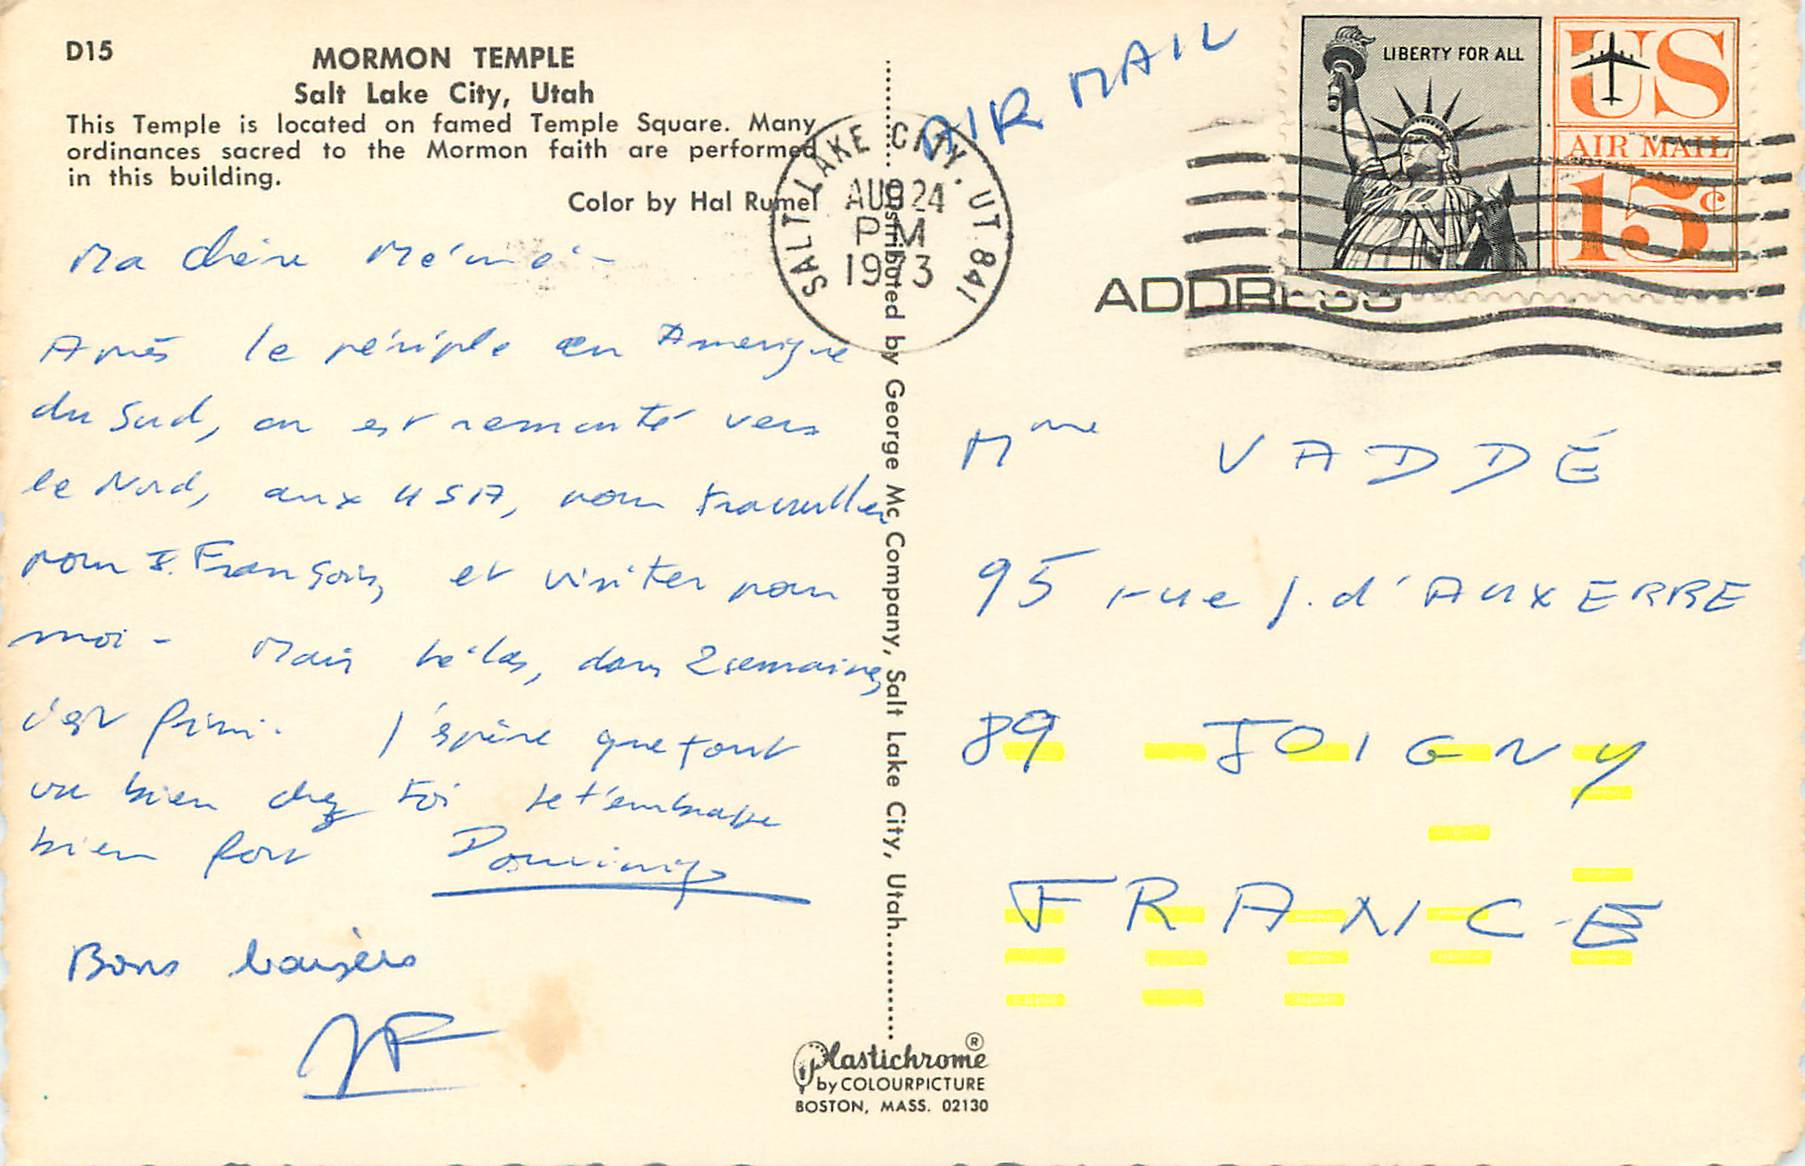 D15
MORMON TEMPLE
Salt Lake City, Utah
This Temple is located on famed Temple Square. Many
ordinances sacred to the Mormon faith are performed
in this building.
Color by Hal Rumel
Ma chère Mémé -
Après le périple en Amérique
du Sud, on est remonté vers
le Nord, aux USA, pour travailler
pour J. François, et visiter pour
moi - Mais hélas, dans 2 semaines,
c'est fini. J'espère que tout
va bien chez toi Je t'embrasse
bien fort Dominique
Bons baisers
JF
Distributed by George Mc Company, Salt Lake City, Utah
Plastichrome ®
by COLOURPICTURE
BOSTON, MASS. 02130
AIR MAIL
SALT LAKE CITY, UT 841
AUG 24
PM
1973
LIBERTY FOR ALL
US
AIR MAIL
15c
ADDRESS
Mme VADDÉ
95 rue J. d'AUXERRE
89 JOIGNY
FRANCE